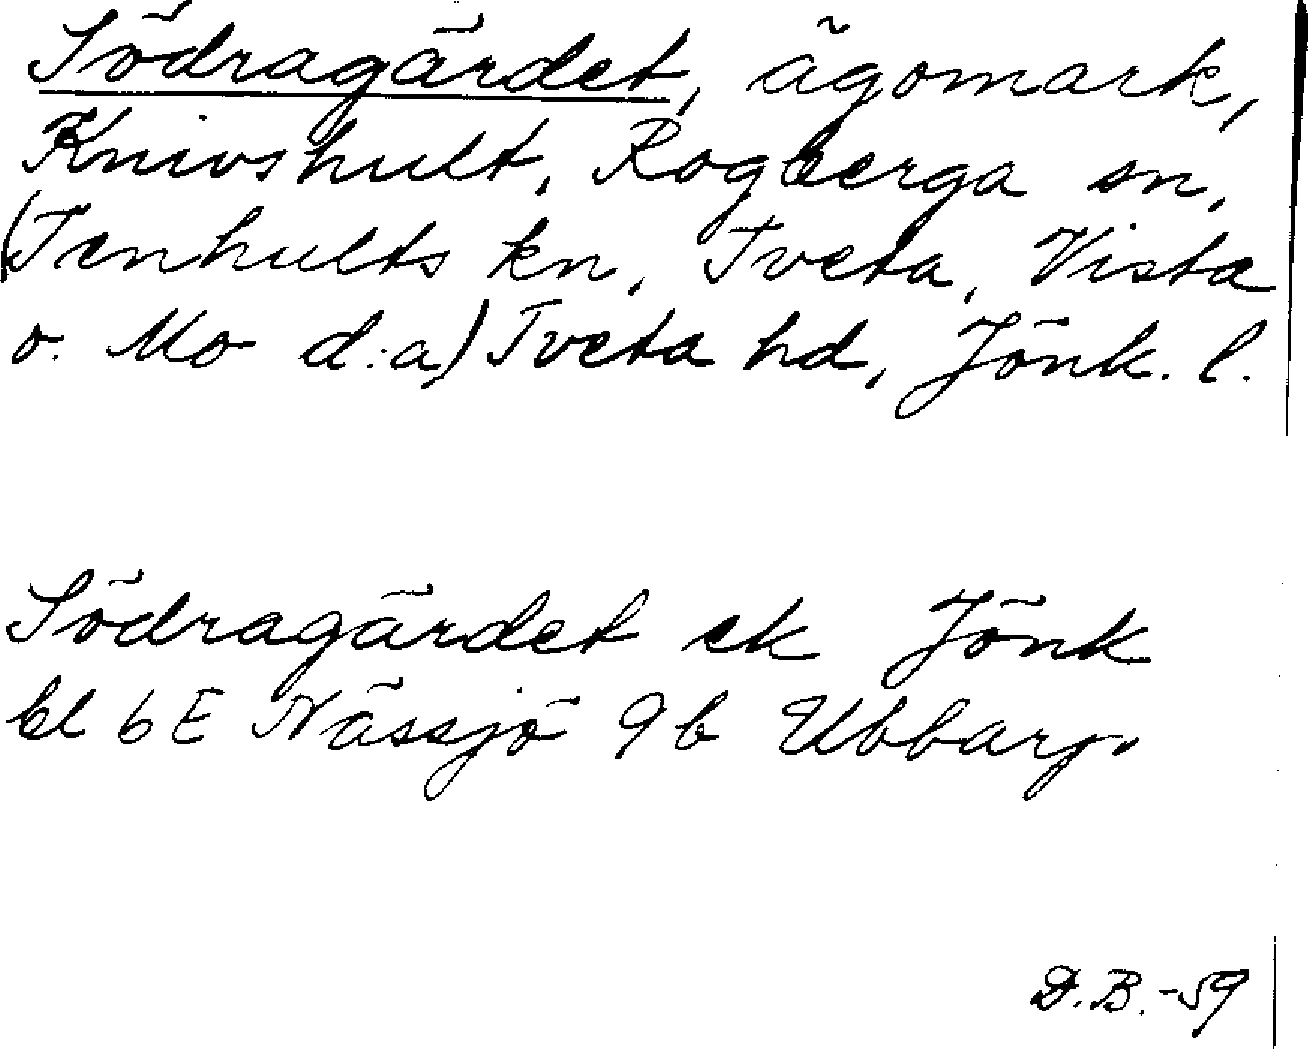 Södragärdet, ägomark,
Knivshult, Rogberga sn,
(Tenhults kn, Tveta, Vista
o. Mo d:a) Tveta hd, Jönk. l.
Södragärdet ek Jönk
bl 6E Nässjö 9b Ubbarp.
D.B.-59